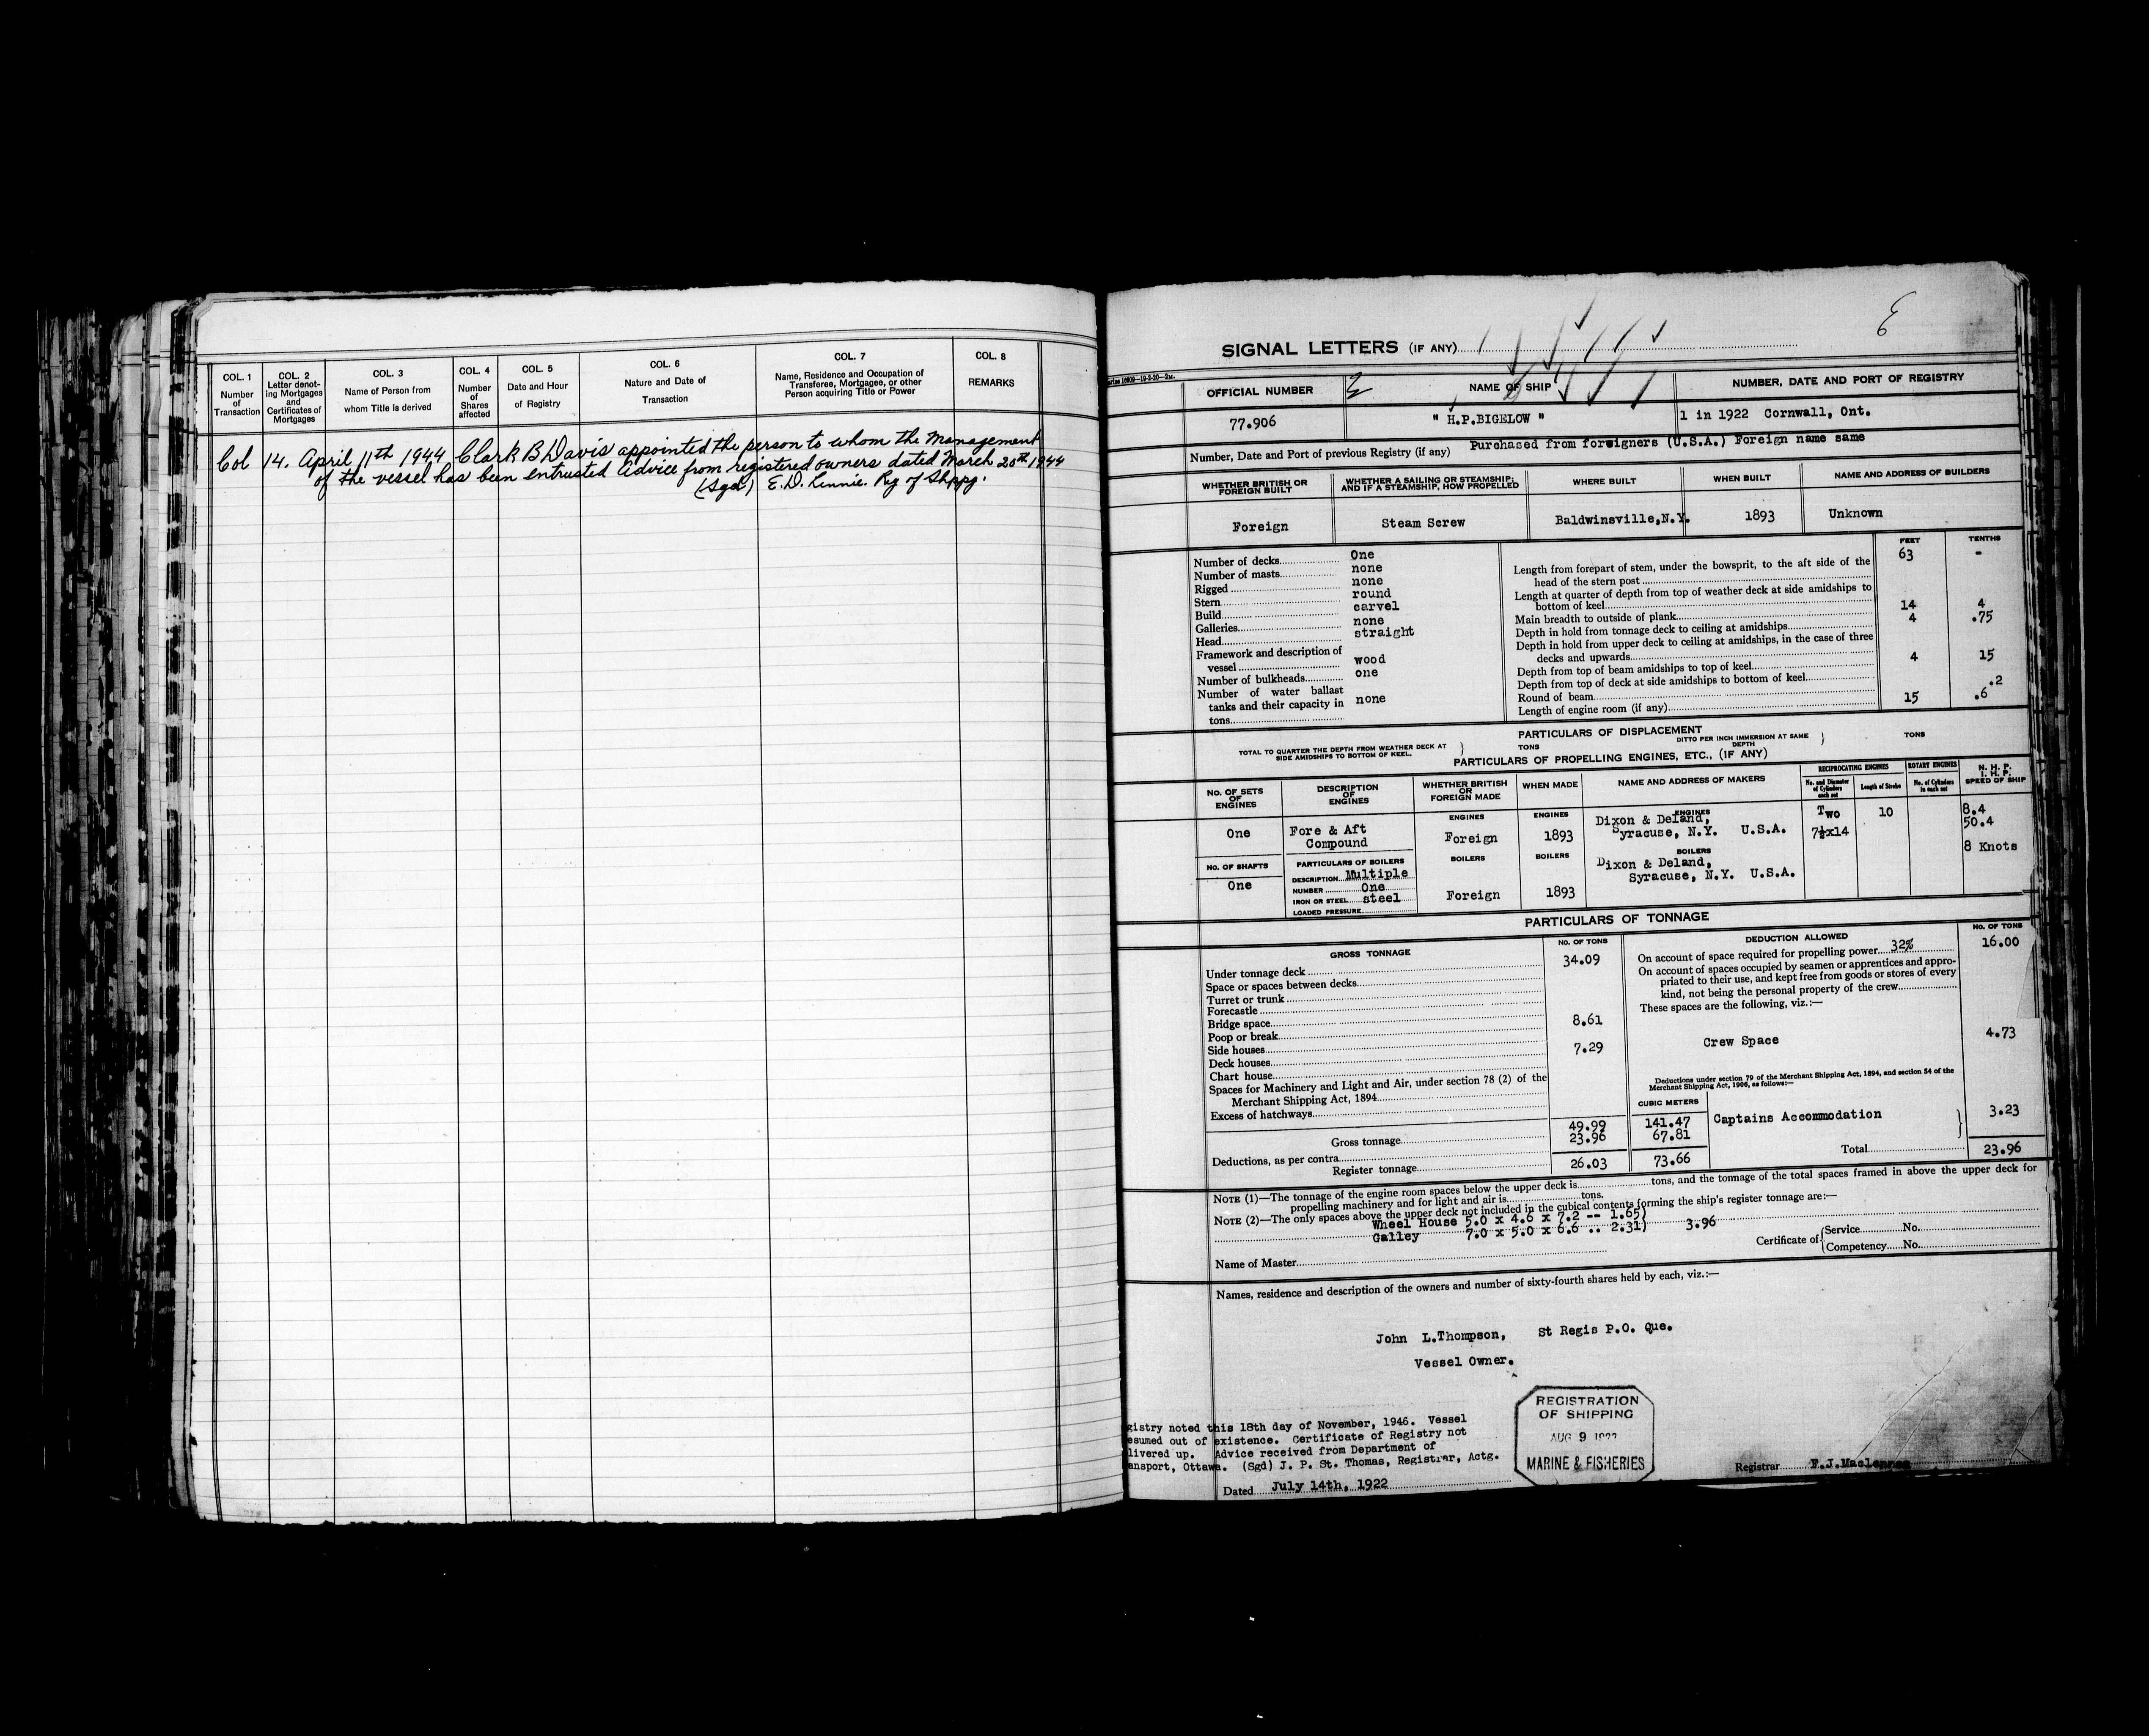 COL. 1
Number
of
Transaction
COL. 2
Letter denot-
ing Mortgages
and
Certificates of
Mortgages
COL. 3
Name of Person from
whom Title is derived
COL. 4
Number
of
Shares
affected
COL. 5
Date and Hour
of Registry
COL. 6
Nature and Date of
Transaction
COL. 7
Name, Residence and Occupation of
Transferee, Mortgagee, or other
Person acquiring Title or Power
COL. 8
REMARKS
Col 14. April 11th 1944 Clark B Davis appointed the person to whom the Management
of the vessel has been entrusted Advice from registered owners dated March 20th 1944
(Sgd) E.D. Rennie. Reg of Shppg.
SIGNAL LETTERS (IF ANY)
OFFICIAL NUMBER
NAME OF SHIP
NUMBER, DATE AND PORT OF REGISTRY
77.906
" H.P.BIGELOW "
1 in 1922 Cornwall, Ont.
Number, Date and Port of previous Registry (if any) Purchased from foreigners (U.S.A.) Foreign name same
WHETHER BRITISH OR
FOREIGN BUILT
WHETHER A SAILING OR STEAMSHIP;
AND IF A STEAMSHIP, HOW PROPELLED
WHERE BUILT
WHEN BUILT
NAME AND ADDRESS OF BUILDERS
Foreign
Steam Screw
Baldwinsville,N.Y.
1893
Unknown
Number of decks One
Number of masts none
Rigged none
Stern round
Build carvel
Galleries none
Head straight
Framework and description of
vessel wood
Number of bulkheads one
Number of water ballast
tanks and their capacity in none
tons
FEET TENTHS
63 -
Length from forepart of stem, under the bowsprit, to the aft side of the
head of the stern post
Length at quarter of depth from top of weather deck at side amidships to
bottom of keel
Main breadth to outside of plank 14 4
Depth in hold from tonnage deck to ceiling at amidships 4 .75
Depth in hold from upper deck to ceiling at amidships, in the case of three
decks and upwards
Depth from top of beam amidships to top of keel 4 15
Depth from top of deck at side amidships to bottom of keel
Round of beam .2
Length of engine room (if any) 15 .6
PARTICULARS OF DISPLACEMENT
TOTAL TO QUARTER THE DEPTH FROM WEATHER DECK AT
SIDE AMIDSHIPS TO BOTTOM OF KEEL.
TONS
DITTO PER INCH IMMERSION AT SAME
DEPTH
TONS
PARTICULARS OF PROPELLING ENGINES, ETC., (IF ANY)
NO. OF SETS
OF
ENGINES
DESCRIPTION
OF
ENGINES
WHETHER BRITISH
OR
FOREIGN MADE
WHEN MADE
NAME AND ADDRESS OF MAKERS
RECIPROCATING ENGINES
No. and Diameter
of Cylinders
each set
Length of Stroke
ROTARY ENGINES
No. of Cylinders
in each set
N. H. P.
I. H. P.
SPEED OF SHIP
One
Fore & Aft
Compound
ENGINES
Foreign
ENGINES
1893
ENGINES
Dixon & Deland,
Syracuse, N.Y. U.S.A.
Two
7½x14
10
8.4
50.4
8 Knots
NO. OF SHAFTS
One
PARTICULARS OF BOILERS
DESCRIPTION Multiple
NUMBER One
IRON OR STEEL steel
LOADED PRESSURE
BOILERS
Foreign
BOILERS
1893
BOILERS
Dixon & Deland,
Syracuse, N.Y. U.S.A.
PARTICULARS OF TONNAGE
GROSS TONNAGE
NO. OF TONS
Under tonnage deck 34.09
Space or spaces between decks
Turret or trunk
Forecastle
Bridge space 8.61
Poop or break
Side houses 7.29
Deck houses
Chart house
Spaces for Machinery and Light and Air, under section 78 (2) of the
Merchant Shipping Act, 1894
Excess of hatchways
CUBIC METERS
Gross tonnage 49.99 141.47
Deductions, as per contra 23.96 67.81
Register tonnage 26.03 73.66
DEDUCTION ALLOWED
NO. OF TONS
On account of space required for propelling power 32% 16.00
On account of spaces occupied by seamen or apprentices and appro-
priated to their use, and kept free from goods or stores of every
kind, not being the personal property of the crew
These spaces are the following, viz.:—
Crew Space 4.73
Deductions under section 79 of the Merchant Shipping Act, 1894, and section 54 of the
Merchant Shipping Act, 1906, as follows:—
Captains Accommodation 3.23
Total 23.96
NOTE (1)—The tonnage of the engine room spaces below the upper deck is tons, and the tonnage of the total spaces framed in above the upper deck for
propelling machinery and for light and air is tons.
NOTE (2)—The only spaces above the upper deck not included in the cubical contents forming the ship's register tonnage are:—
Wheel House 5.0 x 4.6 x 7.2 -- 1.65)
Galley 7.0 x 5.0 x 6.6 .. 2.31) 3.96
Name of Master
Certificate of
Service No.
Competency No.
Names, residence and description of the owners and number of sixty-fourth shares held by each, viz.:—
John L.Thompson, St Regis P.O. Que.
Vessel Owner.
gistry noted this 18th day of November, 1946. Vessel
esumed out of existence. Certificate of Registry not
livered up. Advice received from Department of
ansport, Ottawa. (Sgd) J. P. St. Thomas, Registrar, Actg.
Dated July 14th, 1922
REGISTRATION
OF SHIPPING
AUG 9 1922
MARINE & FISHERIES
Registrar F.J.Maclennan